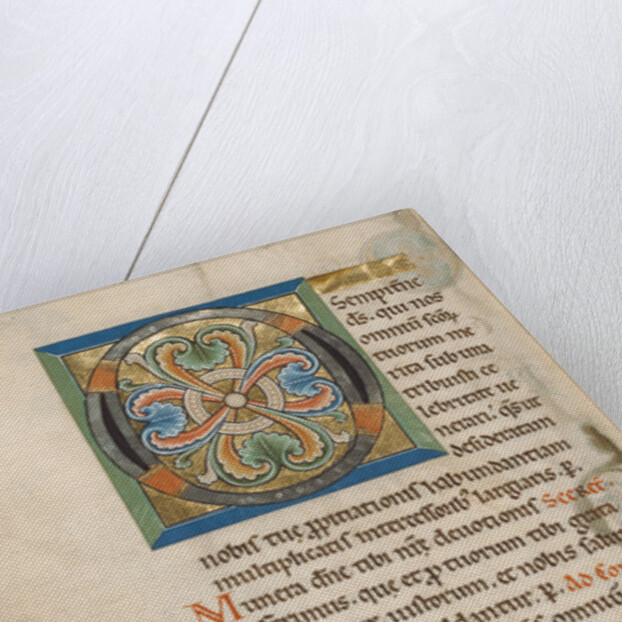 Sempiterne
ds. qui nos
omniū scōꝝ
tuorum me
rita sub una
tribuisti ce
lebritate ue
nerari. qs ut
desideratam
nobis tuę ꝓpitiationis habundantiam
multiplicatis intercessorib' largiaris. p. Secret.
Munera dñe tibi nrę deuotionis
que et ꝓ tuorum tibi grata
iustorum. et nobis salu
Ad Com